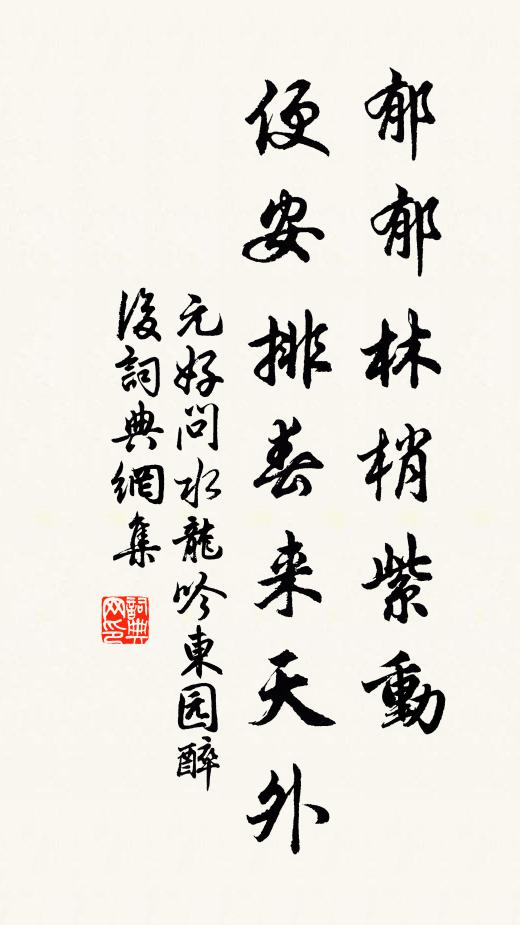 郁郁林梢紫動
便安排春来天外
元好問水龍吟東园醉
後詞典網集
詞典网印